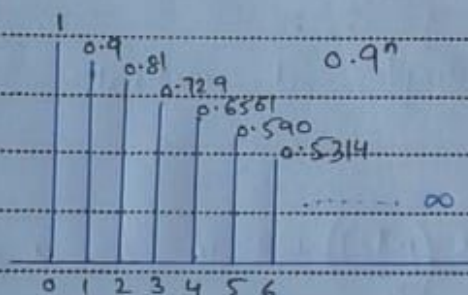 1
0.9
0.9ⁿ
0.81
0.729
0.6561
0.590
0.5314
....... ∞
0 1 2 3 4 5 6